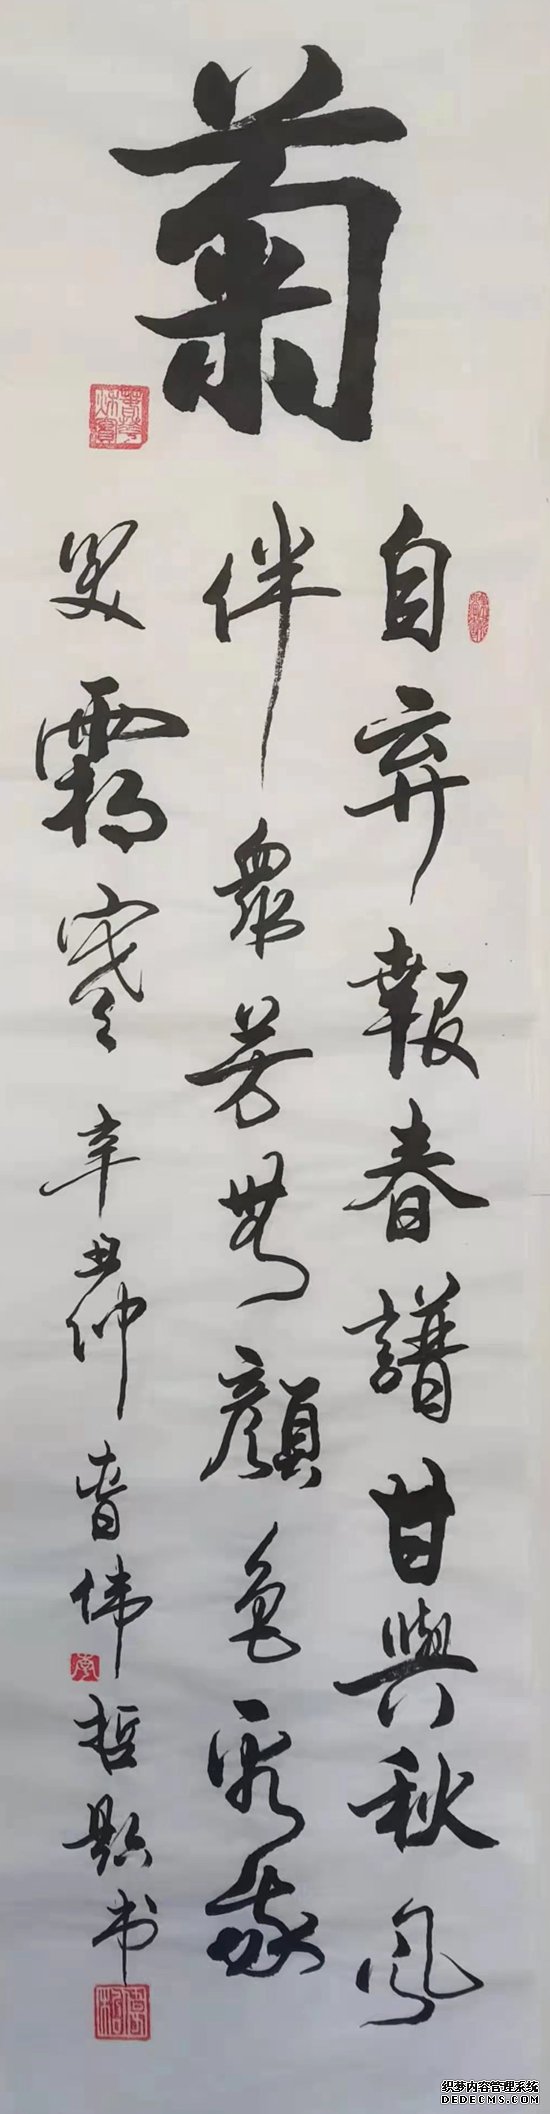 菊
自弃報春譜甘與秋風
伴衆芳無顔色看我
笑霜寒 辛丑仲春伟哲题书
织梦内容管理系统
DEDECMS.COM